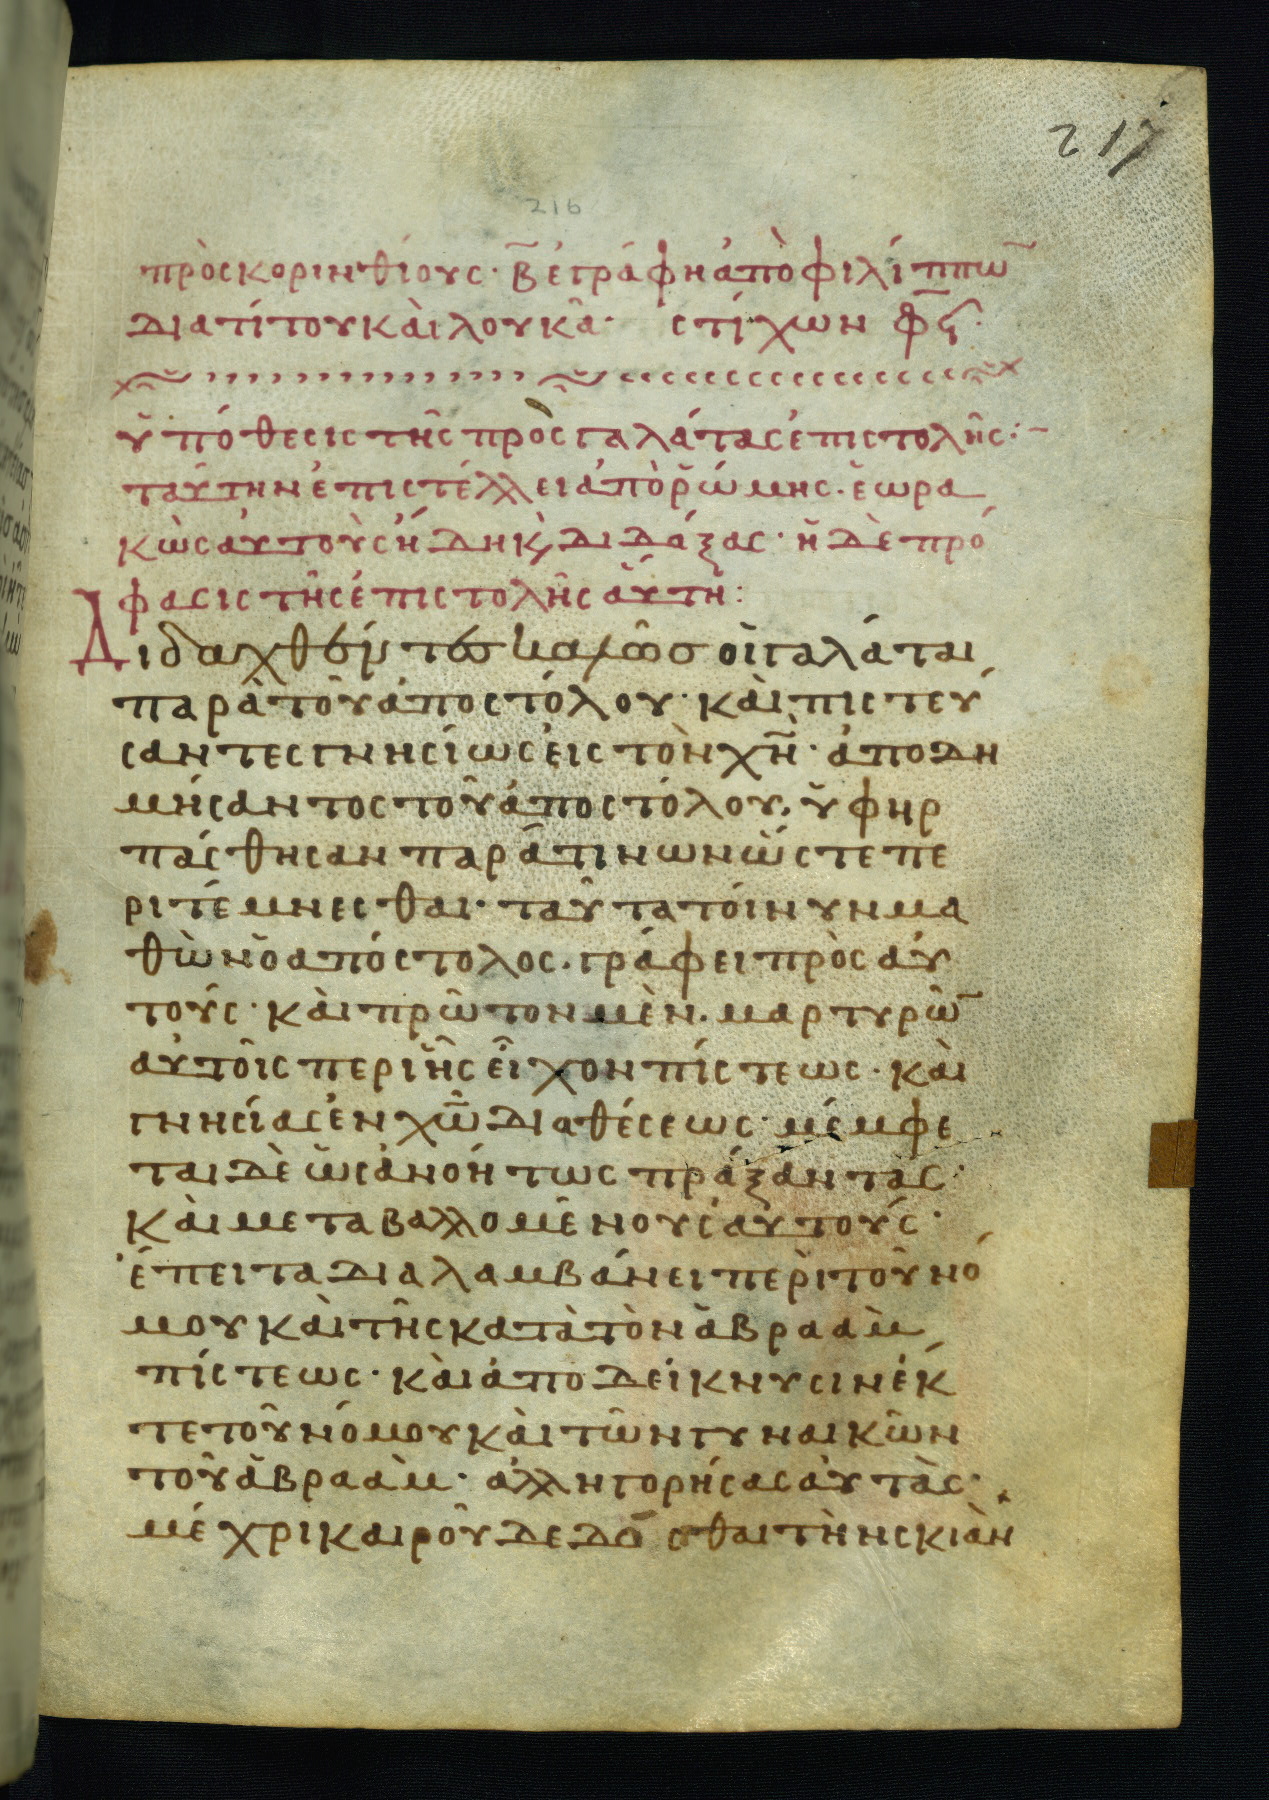 217
216
πρὸς κορινθίους · β̅ ἐγράφη ἀπὸ φιλίππω̅
διὰ τίτου κὰι λουκᾶ · στίχων φϟ ·
ὑπόθεσις τῆς πρὸς γαλάτας ἐπιστολῆς :–
ταύτην ἐπιστέλλει ἀπὸ ῥώμης · ἑωρα
κὼς αυτοὺς ἤδη κ, διδάξας · ἡ δὲ πρό
φασις τῆς ἐπιστολῆς ἁύτη :
Διδαχθέντες καλῶσ οἱ γαλάται
παρὰ τοῦ ἀποστόλου · κὰι πιστεύ
σαντες γνησίως ἐις τὸν χν̅ · ἀποδη
μήσαντος τοῦ ἀποστόλου, ὑφηρ
πάσθησαν παρά τινων ὥστε πε
ριτέμνεσθαι · ταῦτα τόινυν μα
θὼν ὁ απόστολος · γράφει πρὸς ἀυ
τούς · κὰι πρῶτον μὲν · μαρτυρῶ̅
ἀυτοῖς περὶ ἧς ἐῖχον πίστεως · κὰι
γνησίας ἐν χω̅ διαθέσεως · μέμφε
ται δὲ ὡς ἀνοήτως πράξαντας ·
κὰι μεταβαλλομένους ἀυτούς ·
ἔπειτα διαλαμβάνει περὶ τοῦ νό
μου κὰι τῆς κατὰ τὸν ἁβραὰμ
πίστεως · κὰι ἀποδείκνυσιν ἔκ
τε τοῦ νόμου κὰι τῶν γυναικῶν
τοῦ ἁβραὰμ · ἀλληγορήσας ἀυτὰς ·
μέχρι καιροῦ δεδόσθαι τὴν σκιὰν